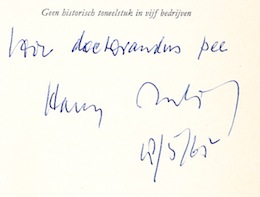 Geen historisch toneelstuk in vijf bedrijven
Voor doctorandus pee
Harry
12/5/65